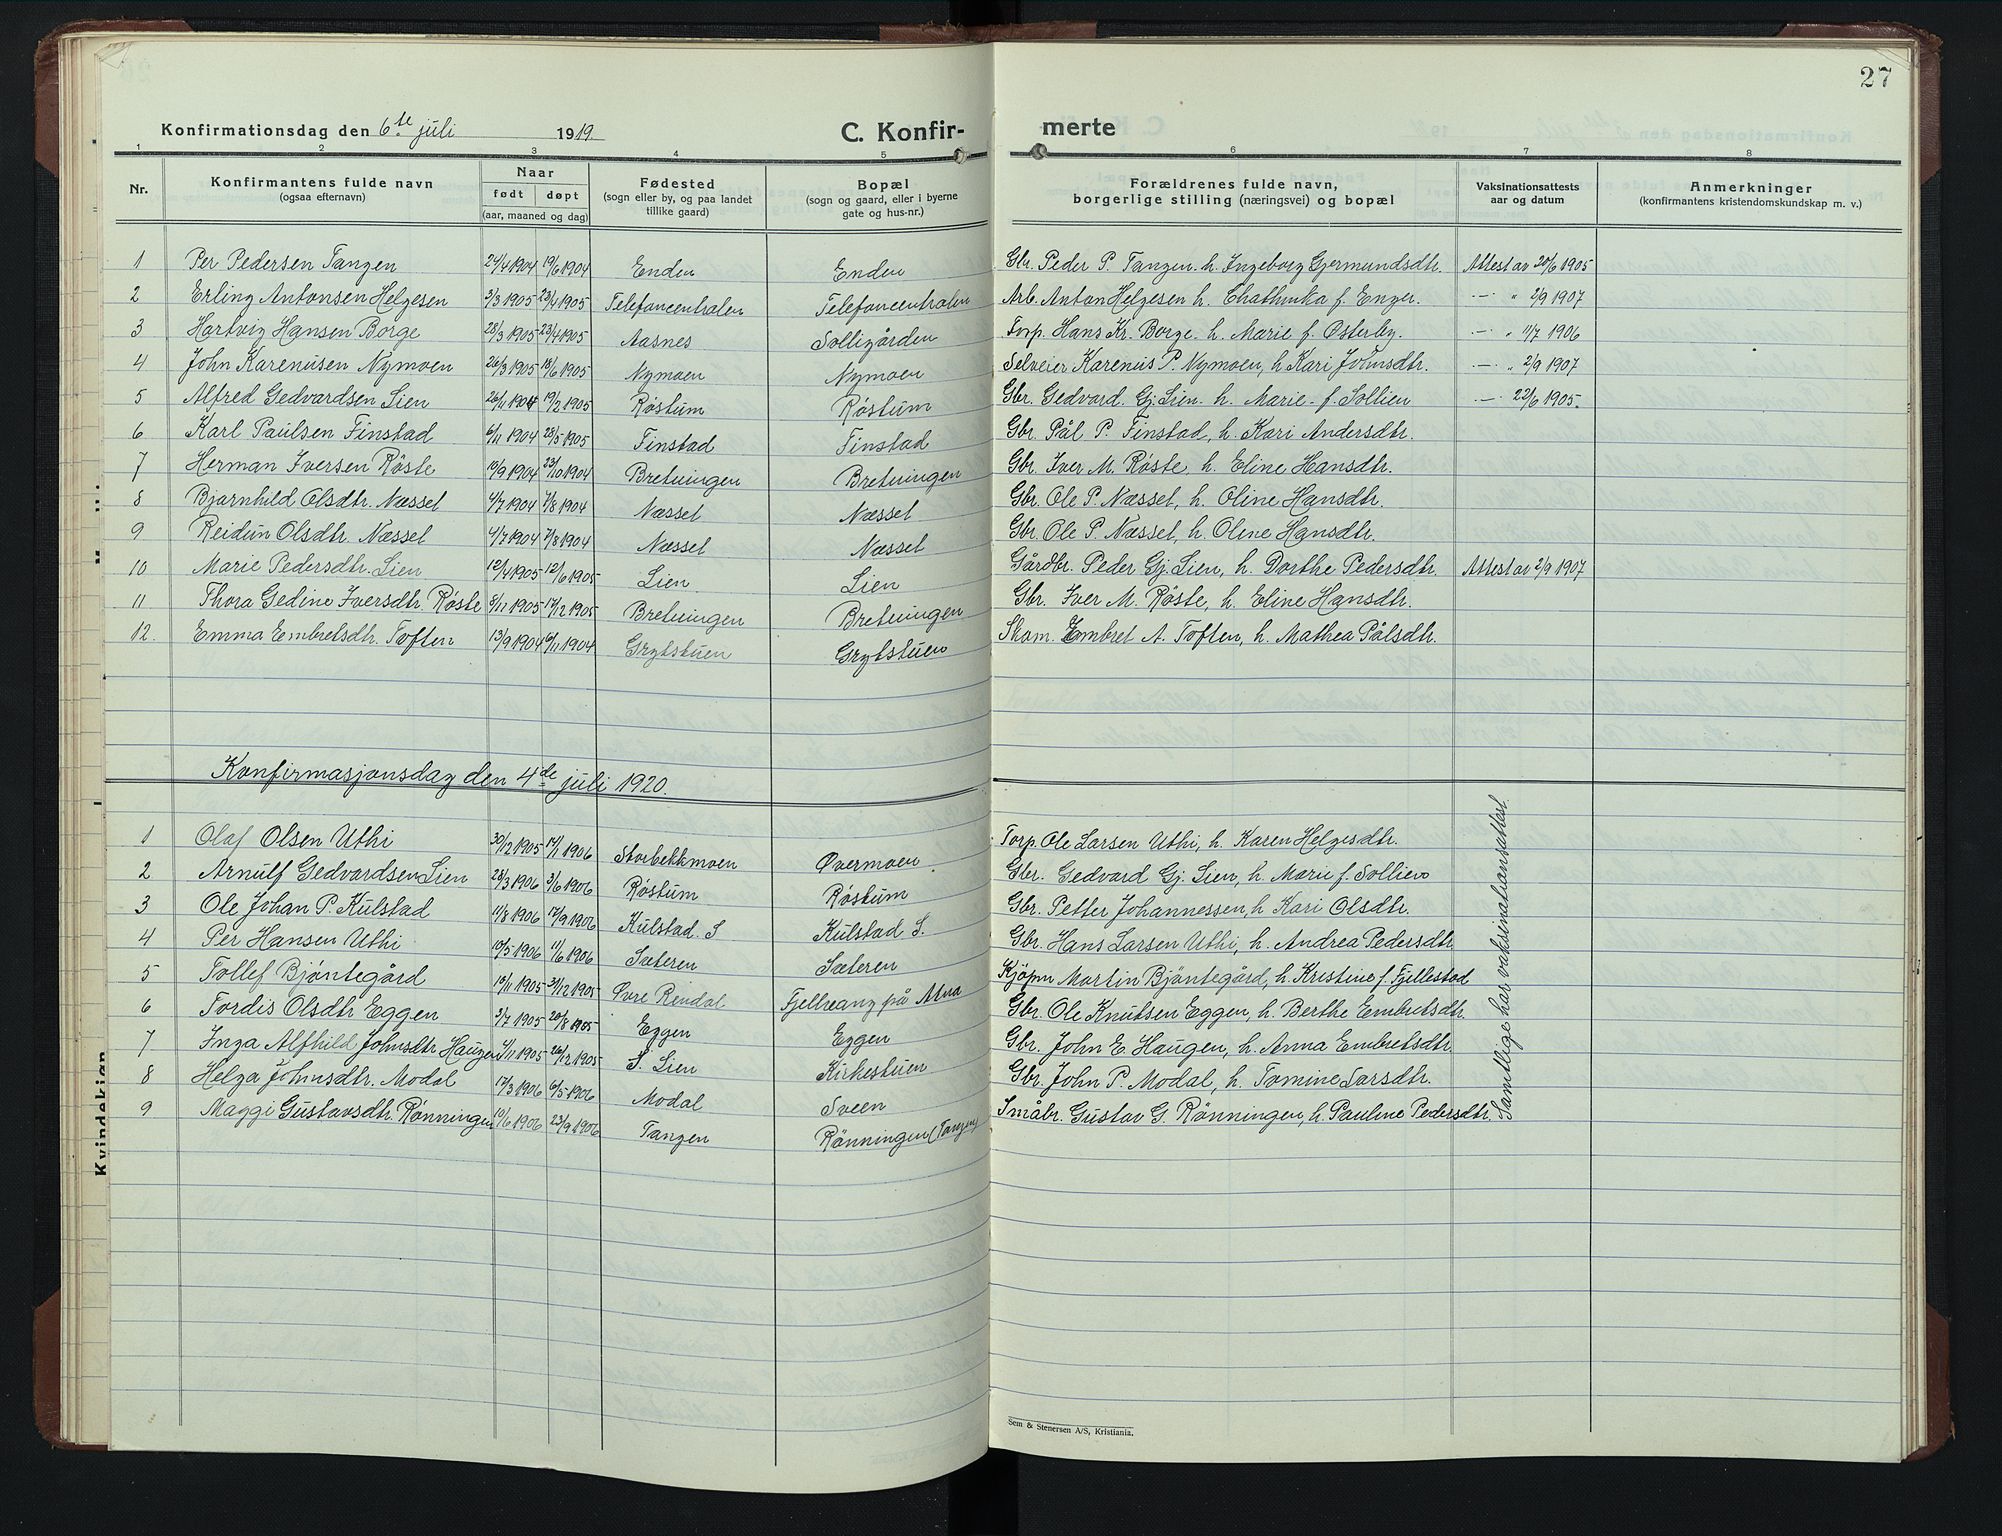 27
Konfirmationsdag den 6te juli 1919 C. Konfirmerte
1 2 3 4 5 6 7 8
Nr. Konfirmantens fulde navn (ogsaa efternavn) Naar født døpt (aar, maaned og dag) Fødested (sogn eller by, og paa landet tillike gaard) Bopæl (sogn og gaard, eller i byerne gate og hus-nr.) Forældrenes fulde navn, borgerlige stilling (næringsvei) og bopæl Vaksinationsattests aar og datum Anmerkninger (konfirmantens kristendomskundskap m. v.)
1 Per Pedersen Tangen 24/4 1904 19/6 1904 Enden Enden Gbr. Peder P. Tangen h. Ingeborg Gjermundsdtr. Attest av 20/6 1905
2 Erling Antonsen Helgesen 3/3 1905 23/4 1905 Telefoncentralen Telefoncentralen Arb. Anton Helgesen h. Chathinka f. Enger. — " 2/9 1907
3 Hartvig Hansen Borge 28/3 1905 23/4 1905 Aasnes Solligården Torp. Hans Kr. Borge h. Marie f. Østerby. — " 11/7 1906
4 John Karenusen Nymoen 26/3 1905 18/6 1905 Nymoen Nymoen Selveier Karenus P. Nymoen, h. Kari Johnsdtr. — " 2/9 1907
5 Alfred Gedvardsen Lien 26/11 1904 19/2 1905 Røstum Røstum Gbr. Gedvard Gj. Lien h. Marie f. Sollien — 23/6 1905.
6 Karl Paulsen Finstad 6/11 1904 28/5 1905 Finstad Finstad Gbr. Pål P. Finstad, h. Kari Andersdtr.
7 Herman Iversen Røste 10/9 1904 23/10 1904 Bretningen Bretningen Gbr. Iver M. Røste, h. Eline Hansdtr.
8 Bjarnhild Olsdtr. Næssel 4/7 1904 7/8 1904 Næssel Næssel Gbr. Ole P. Næssel, h. Oline Hansdtr.
9 Reidun Olsdtr. Næssel 4/7 1904 7/8 1904 Næssel Næssel Gbr. Ole P. Næssel, h. Oline Hansdtr.
10 Marie Pedersdtr. Lien 12/4 1905 12/6 1905 Lien Lien Gårdbr. Peder Gj. Lien, h. Dorthe Pedersdtr. Attest av 2/9 1907
11 Thora Gedine Iversdtr. Røste 8/11 1905 17/12 1905 Bretningen Bretningen Gbr. Iver M. Røste, h. Eline Hansdtr.
12. Emma Embretsdtr. Toften 13/9 1904 6/11 1904 Grytstuen Grytstuen Skom. Embret A. Toften, h. Mathea Pålsdtr.
Konfirmasjonsdag den 4de juli 1920.
1 Olaf Olsen Uthi 30/12 1905 17/1 1906 Storbekkmoen Øvermoen Torp. Ole Larsen Uthi, h. Karen Helgesdtr.
2 Arnulf Gedvardsen Lien 28/3 1906 3/6 1906 Røstum Røstum Gbr. Gedvard Gj. Lien, h. Marie f. Sollien
3 Ole Johan P. Kulstad 11/8 1906 17/9 1906 Kulstad. S Kulstad S. Gbr. Petter Johannessen, h. Kari Olsdtr.
4 Per Hansen Uthi 10/5 1906 11/6 1906 Sæteren Sæteren Gbr. Hans Larsen Uthi, h. Andrea Pedersdtr.
5 Tollef Bjøntegård 10/11 1905 31/12 1905 Øvre Rendal Fjellvang på Atna Kjøpm Martin Bjøntegård, h. Kristine f. Fjillestad
6 Tordis Olsdtr Eggen 3/7 1905 20/8 1905 Eggen Eggen Gbr. Ole Knutsen Eggen, h. Berthe Embretsdtr.
7 Inga Alfhild Johnsdtr Haugen 4/11 1905 26/12 1905 S. Lien Kirkestuen Gbr. John E. Haugen, h. Anna Embretsdtr.
8 Helga Johnsdtr. Modal 17/3 1906 6/5 1906 Modal Sveen Gbr. John P. Modal, h. Tomine Larsdtr.
9 Maggi Gustavsdtr. Rønningen 10/6 1906 23/9 1906 Tangen Rønningen (Tangen) Småbr. Gustav G. Rønningen, h. Pauline Pedersdtr.
Samtlige har vaksinationsattest.
Kvindekjøn
Sem & Stenersen A/S, Kristiania.